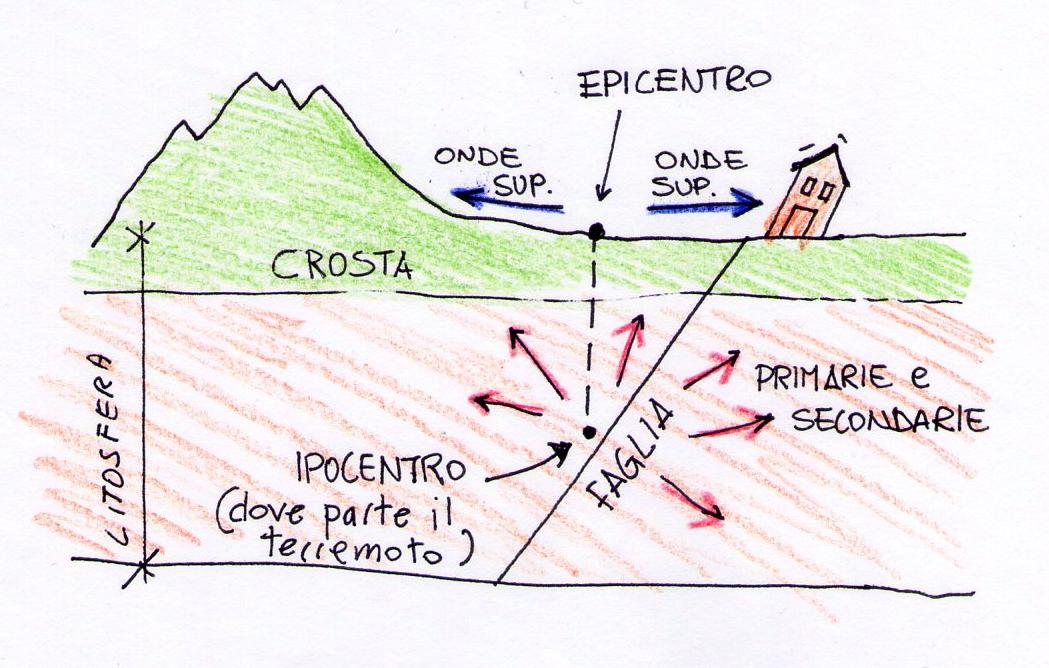 EPICENTRO
ONDE
SUP.
ONDE
SUP.
CROSTA
LITOSFERA
PRIMARIE e
SECONDARIE
FAGLIA
IPOCENTRO
(dove parte il
terremoto)